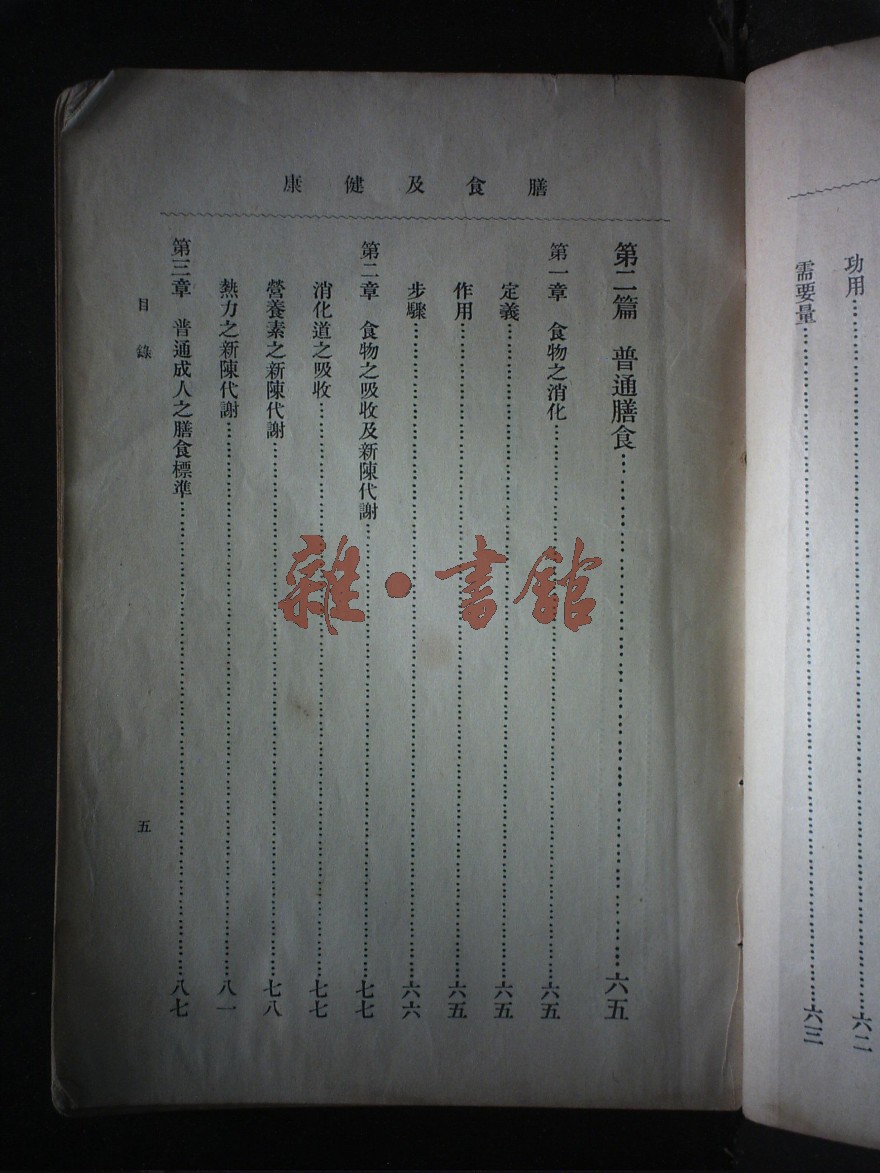 膳食及健康
功用…………六二
需要量…………六三
第二篇　普通膳食…………六五
第一章　食物之消化…………六五
定義…………六五
作用…………六五
步驟…………六六
第二章　食物之吸收及新陳代謝…………七七
消化道之吸收…………七七
營養素之新陳代謝…………七八
熱力之新陳代謝…………八一
第三章　普通成人之膳食標準…………八七
目錄
五
雜·書館